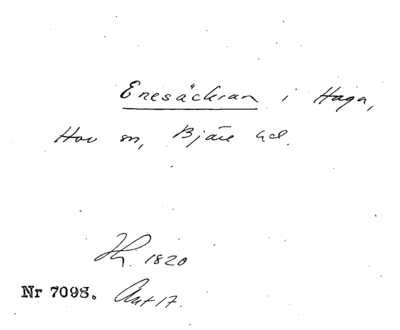 Enesäckran i Haga,
Hov sn, Bjäre hd.
1820
Nr 7098. Ant 17.